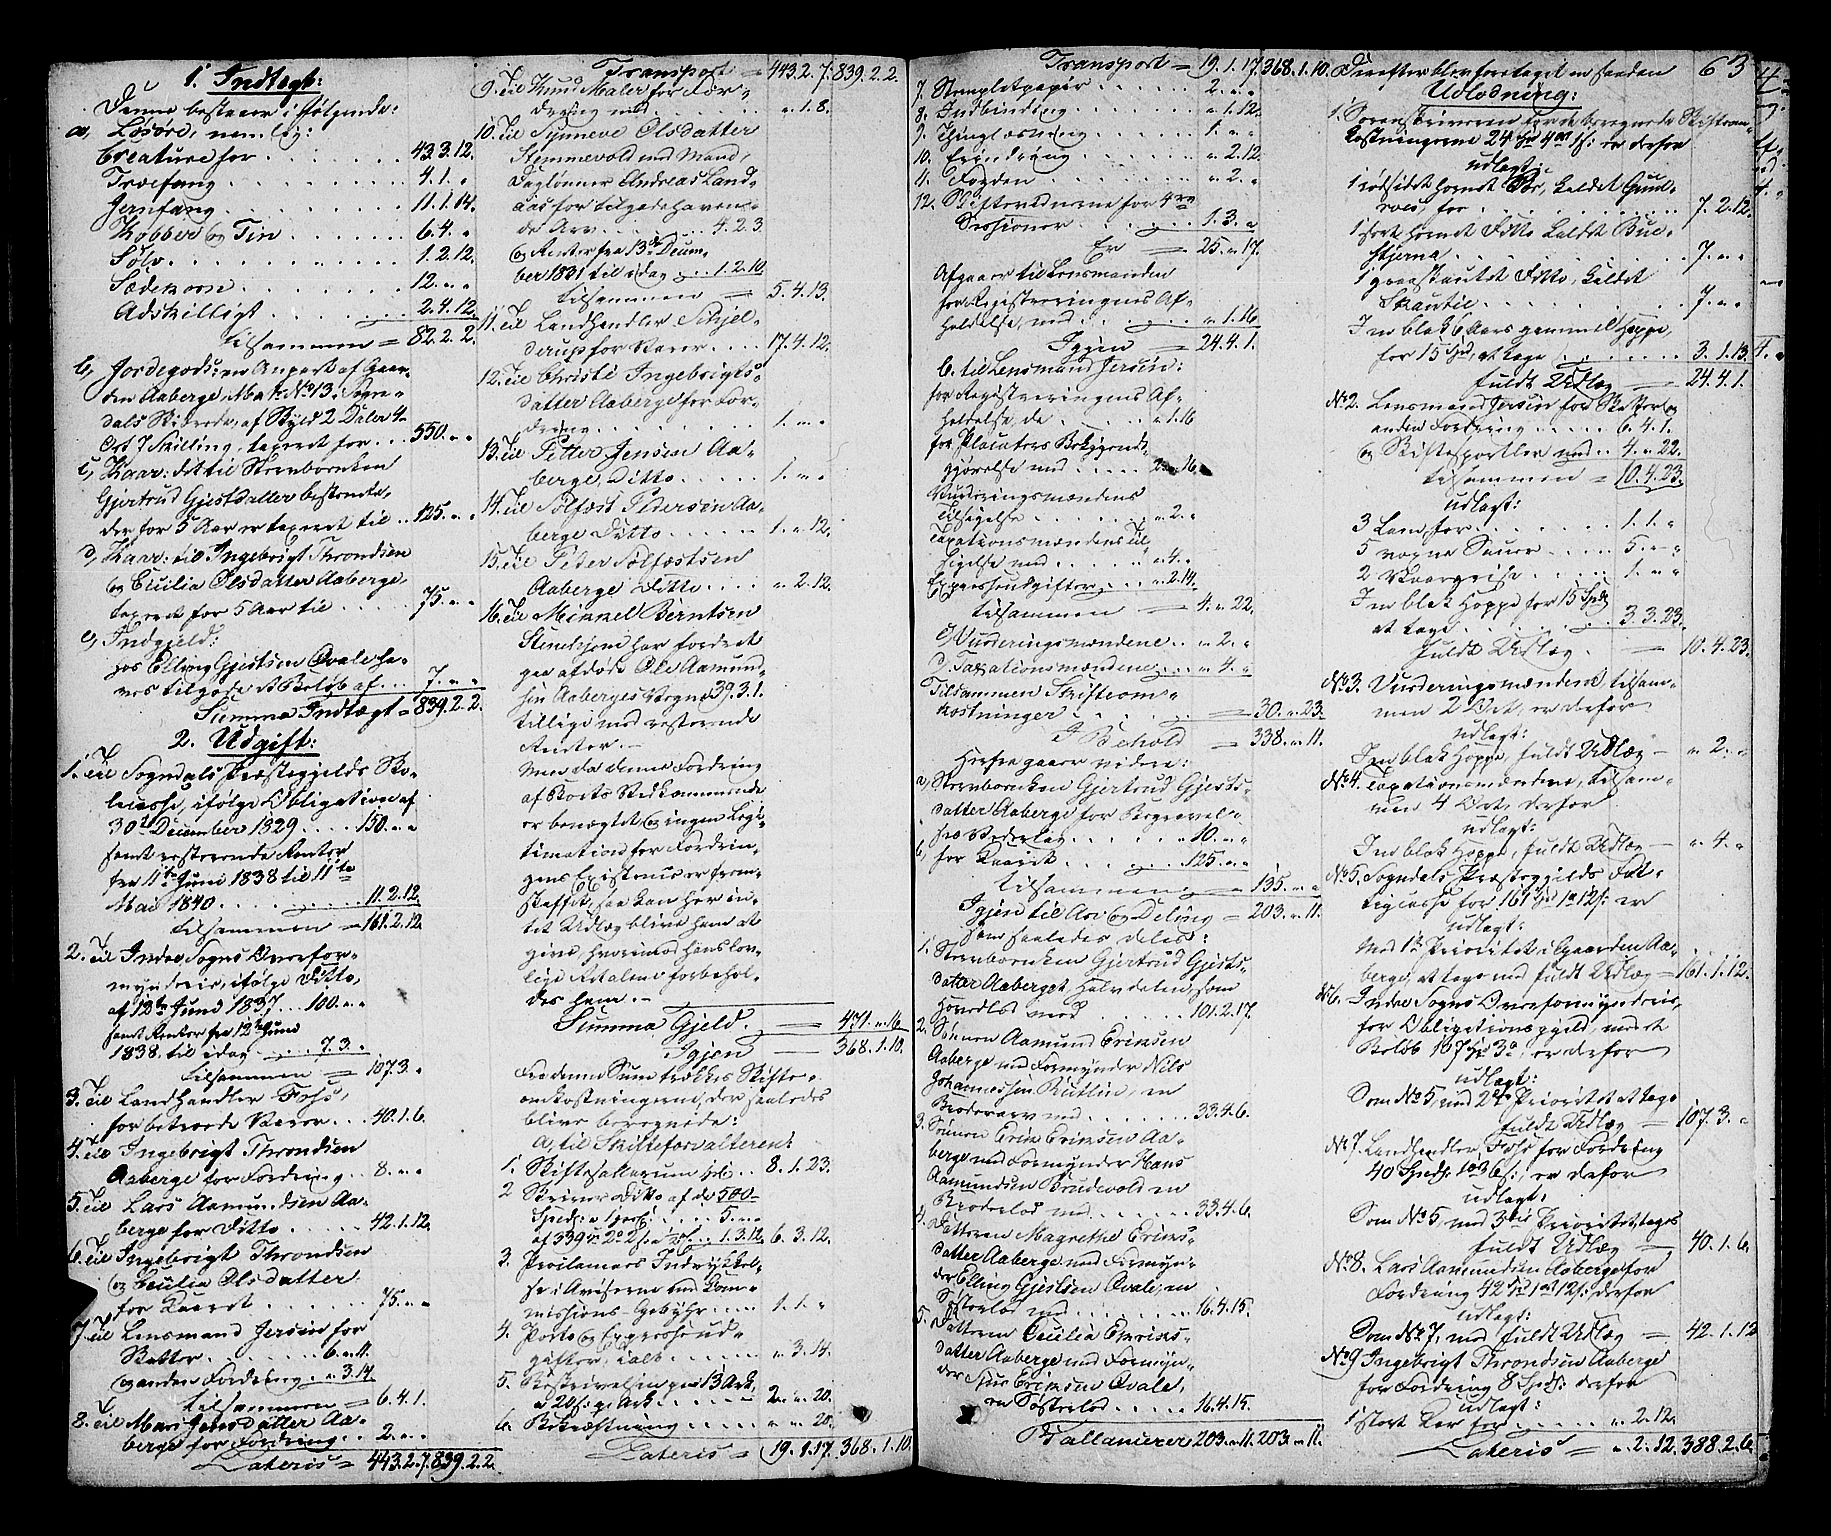 1. Indtægt:
Denne bestaaer i følgende:
a, Løsøre, nemlig:
Creature for . . . . . . . 43.3.12.
Træfang . . . . . . . . 4.1. "
Jernfang . . . . . . . . 11.1.14.
Kobber og Tin . . . . . . . 6.4. "
Sølv . . . . . . . . 1.2.12.
Sædekorn . . . . . . . . 12. " "
Adskilligt . . . . . . . 2.4.12.
tilsammen = 82.2.2.
b, Jordegods: en Anpart af Gaar-
den Aaberge Matr: No 13 i Sogn-
dals Skibrede, af Skyld 2 Daler 4
Ort 7 Skilling, taxeret for . . 550. " "
c, Kaar: det til Stervboenken
Gjertrud Gjestsdatter bestemte,
der for 5 Aar er taxeret til . . 125. " "
d, Kaar: til Ingebrigt Throndsen
og Cecilia Olsdatter Aaberge,
taxeret for 5 Aar til . . . . 75. " "
e, Indgjeld:
hos Elling Gjestsen Qvale ha-
ves tilgode et Beløb af . . 7. " "
Summa Indtægt = 839.2.2.
2. Udgift:
1. Til Sogndals Præstegjelds Sko-
lecasse, ifølge Obligation af
30te December 1829 . . . . 150. " "
samt resterende Renter
fra 11te Juni 1838 til 11te
Mai 1840 . . . . . . 11.2.12.
tilsammen = 161.2.12.
2. Til Indre Sogns Overfor-
mynderie, ifølge Ditto,
af 12te Juni 1837 . . . 100. " "
samt Renter fra 12te Juni
1838 til idag . . . . 7.3. "
tilsammen = 107.3. "
3. Til Landhandler Foss,
for betroede Varer . . . 40.1.6.
4. Til Ingebrigt Throndsen
Aaberge for Fordring . . 8. " "
5. Til Lars Aamundsen Aa-
berge for Ditto . . . . . 42.1.12.
6. Til Ingebrigt Throndsen
og Cecilia Olsdatter
for Kaaret . . . . . . 75. " "
7. Til Lensmand Jersin for
Skatter . . . . . . . 6. " 11.
og anden Fordring " 3.14.
tilsammen = 6.4.1.
8. Til Mari Jensdatter Aa-
berge for Fordring . . 2. " "
Lateris = 443.2.7. 839.2.2.
Transport = 443.2.7. 839.2.2.
9. Til Knud Maler for For-
dring med . . . . . . . " 1.8.
10. Til Synneve Olsdatter
Stemmevold med Mand,
Daglønner Andreas Land-
aas for tilgodehaven-
de Arv . . . . . . 4.2.3
og Renter fra 13de Decem-
ber 1831 til idag . . 1.2.10.
tilsammen = 5.4.13.
11. Til Landhandler Schjel-
derup for Varer . . . . 17.4.12.
12. Til Christi Ingebrigts-
datter Aaberge for For-
dring . . . . . . . . 1. " "
13. Til Petter Jensen Aa-
berge Ditto . . . . . 1. " "
14. Til Solfæst Pedersen Aa-
berge Ditto . . . . . 1. " 12.
15. Til Peder Solfæstsen
Aaberge Ditto . . . . " 2.12.
16. Til Mikkel Berntsen
Stendsjone har fordret
paa afdøde Ole Aamund-
sen Aaberges Vegne 39.3.1.
tillige med resterende
Renter. –
Men da denne Fordring
af Boets Vedkommende
er benægtet, og ingen Legi-
timation for Fordrin-
gens Existens er frem-
skaffet, saa kan her in-
tet Udlæg blive ham at
give, hvorimod hans lov-
lige Paatale forbehol-
des ham. –
Summa Gjeld. = 471. " 16
Igjen = 368.1.10.
Fra denne Sum trækkes Skifte-
omkostningerne, der saaledes
blive beregnede:
a, til Skifteforvalteren:
1. Skiftesallarium . . 8.1.23.
2 Skriver Ditto af de 500
Spd. . . . . 5. " "
af 339 . . 1.3.12. 6.3.12.
3. Proclamas Indrykkel-
se i Aviserne med Com-
missions-Gebyhr . . . 1.1. "
4. Porto og Expressud-
gifter, ialt . . . . . " 3.14.
5. Beskrivelsen paa 13 Ark,
a 20 s. pr Ark . . . . . 2. " 20.
6. Bekræftning . . . . . " " 20.
Lateris = 19.1.17. 368.1.10.
Transport = 19.1.17. 368.1.10.
7. Stemplet papir . . . . . 2. " "
8. Indbinding . . . . . . " 1.12.
9. Thinglæsning . . . . . 1. " "
10. Erindring . . . . . . " 2.12.
11. Fogden . . . . . . . " 2. "
12. Skiftevidnerne for 4re
Sessioner . . . . . 1.3. "
Er = 25. " 17.
Afgaaer til Lensmanden
for Registreringens Af-
holdelse, med . . . . . " 1.16
Igjen = 24.4.1.
b. til Lensmand Jersin:
for Registreringens Af-
holdelse, de . . . . " 1.16
for Placaters Bekjendt-
gjørelse med . . . . 16.
Vurderingsmændenes
Tilsigelse . . . . . " 2. "
Taxationsmændenes Til-
sigelse med . . . . " 4. "
Expressudgifter . . . " 2.14.
tilsammen = 4. " 22.
c, Vurderingsmændene . . " 2. "
d, Taxationsmændene . . " 4. "
Tilsammen Skifteom-
kostninger . . . . = 30. " 23.
I Behold = 338. " 11.
Herfra gaaer videre:
a, Stervboenken Gjertrud Gjests-
datter Aaberge for Begravel-
ses Vederlag . . . . . 10. " "
b, for Kaaret . . . . 125. " "
tilsammen = 135. " "
Igjen til Arv og Deling = 203. " 11.
som saaledes deles:
1. Stervboenken Gjertrud Gjests-
datter Aaberget Halvdelen, som
Hovedlod med . . . . . 101.2.17.
2. Sønnen Aamund Ericksen
Aaberge med Formynder Nils
Johannessen Rutlin, en
Broderarv med . . . . . 33.4.6.
3. Sønnen Erik Ericksen Aa-
berge med Formynder Hans
Aamundsen Brudevold en
Broderlod med . . . . . 33.4.6.
4. Datteren Magrethe Ericks-
datter Aaberge med Formyn-
der Elling Gjestsen Qvale, en
Søsterlod med . . . . . 16.4.15.
5. Datteren Cecilia Ericks-
datter Aaberge med Formyn-
der Sjur Ericksen Qvale,
en Søsterlod . . . . . 16.4.15.
Ballancerer 203. " 11. 203. " 11.
Derefter blev foretaget en saadan 63
Udlodning:
1. Sorenskriveren for de beregnede Skifteom-
kostningerne 24 Spd 4 ort 1 s: er derfor
udlagt:
1 rødsidet hornet Koe, kaldet Gun-
roes, for . . . . . . . 7.2.12.
1 sort hornet Ditto kaldt Bue-
stjerna . . . . . . . . 7. " "
1 graastautet Ditto, kaldet
Skautie . . . . . . . . 7. " "
I en blak 6 Aars gammel Hoppe,
for 15 Spd, at tage . . . . . 3.1.13.
fuldt Udlæg = 24.4.1.
No 2. Lensmand Jersin for Skatter og
anden Fordring . . . . . 6.4.1.
og Skiftesportler med . . 4. " 22.
tilsammen = 10.4.23.
udlagt:
3 Lam, for . . . . . . . 1.1. "
5 voxne Sauer . . . . . 5. " "
2 Vaargrise . . . . . . 1. " "
I en blak Hoppe for 15 Spd
at tage . . . . . . . 3.3.23.
fuldt Udlæg = 10.4.23.
No 3. Vurderingsmændene, tilsam-
men 2 Ort, er derfor
udlagt:
I en blak Hoppe, fuldt Udlæg = " 2. "
No 4. Taxationsmændene, tilsam-
men 4 Ort, derfor
udlagt:
I en blak Hoppe, fuldt Udlæg = " 4. "
No 5. Sogndals Præstegjelds Fat-
tigcasse for 161 Spd 1 ort 12 s: er
udlagt:
Med 1ste Prioritet i Gaarden Aa-
berge, at tage med fuldt Udlæg = 161.1.12.
No 6. Indre Sogns Overformynderie,
for Obligationsgjeld, med et
Beløb 107 Spd 3 ort, er derfor
udlagt:
Som No 5, med 2den Prioritet at tage
fuldt Udlæg = 107.3. "
No 7. Landhandler Foss for Fordring
40 Spd. 1 ort 6 s; er derfor
udlagt:
Som No 5, med 3die Prioritet, tages
fuldt Udlæg = 40.1.6.
No 8. Lars Aamundsen Aaberge for
Fordring 42 Spd 1 ort 12 s: derfor
udlagt:
Som No 7, med fuldt Udlæg = 42.1.12
No 9 Ingebrigt Throndsen Aaberge
for Fordring 8 Spd: derfor
udlagt:
1 stort Kar for . . . . . " 2.12.
Lateris = " 2.12. 388.2.6.